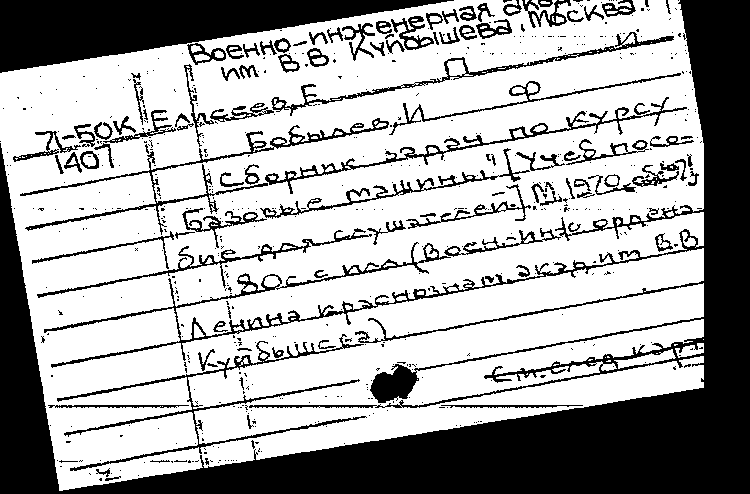 Военно-инженерная акаде
им. В.В. Куйбышева. Москва.
71-БОК Елисеев, Е П И
1407 Бобылев, И Ф
Сборник задач по курсу
"Базовые машины". [Учеб. посо-
бие для слушателей]. М., 1970.
80с. с илл. (Воен.-инж. ордена
Ленина краснознам. акад. им В.В
Куйбышева.)
См. след карт